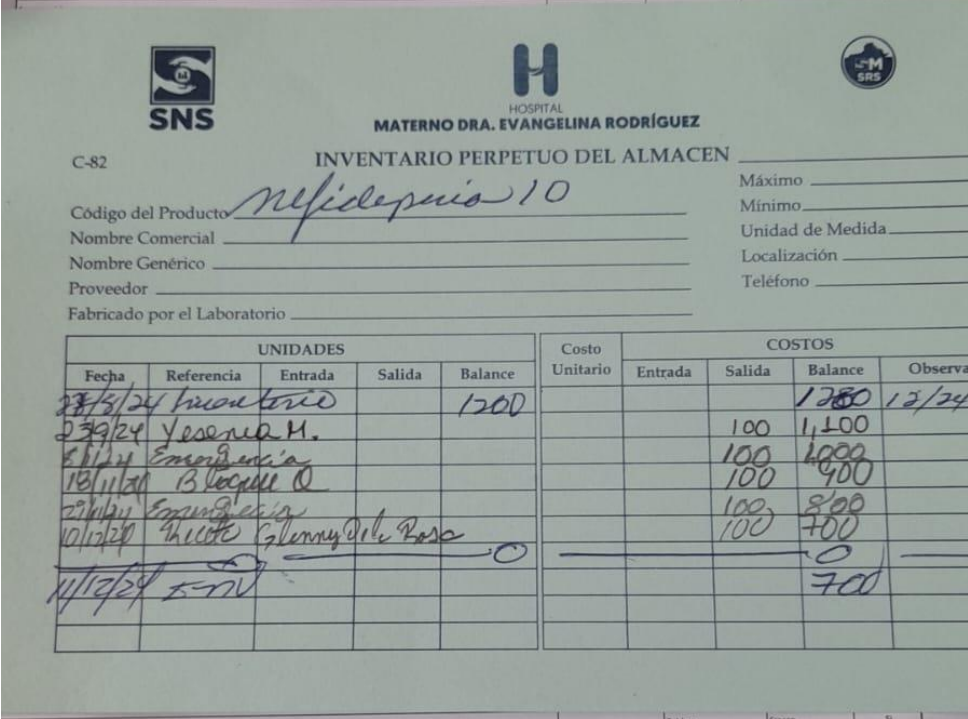 SNS
HOSPITAL
MATERNO DRA. EVANGELINA RODRÍGUEZ
SM
SRS
C-82
INVENTARIO PERPETUO DEL ALMACEN
Código del Producto 10
Nombre Comercial
Nombre Genérico
Proveedor
Fabricado por el Laboratorio
Máximo
Mínimo
Unidad de Medida
Localización
Teléfono
UNIDADES Costo Unitario COSTOS
Fecha Referencia Entrada Salida Balance Entrada Salida Balance Observa
/8/24 Inventario 1200 12/24
23/9/24 Yesenia M. 100 1,100
Emergencia 100 1000
18/11/24 Bloque Q 100 900
Emergencia 100 800
10/12/24 Glenny De la Rosa 100 700
0 0
11/12/24 700